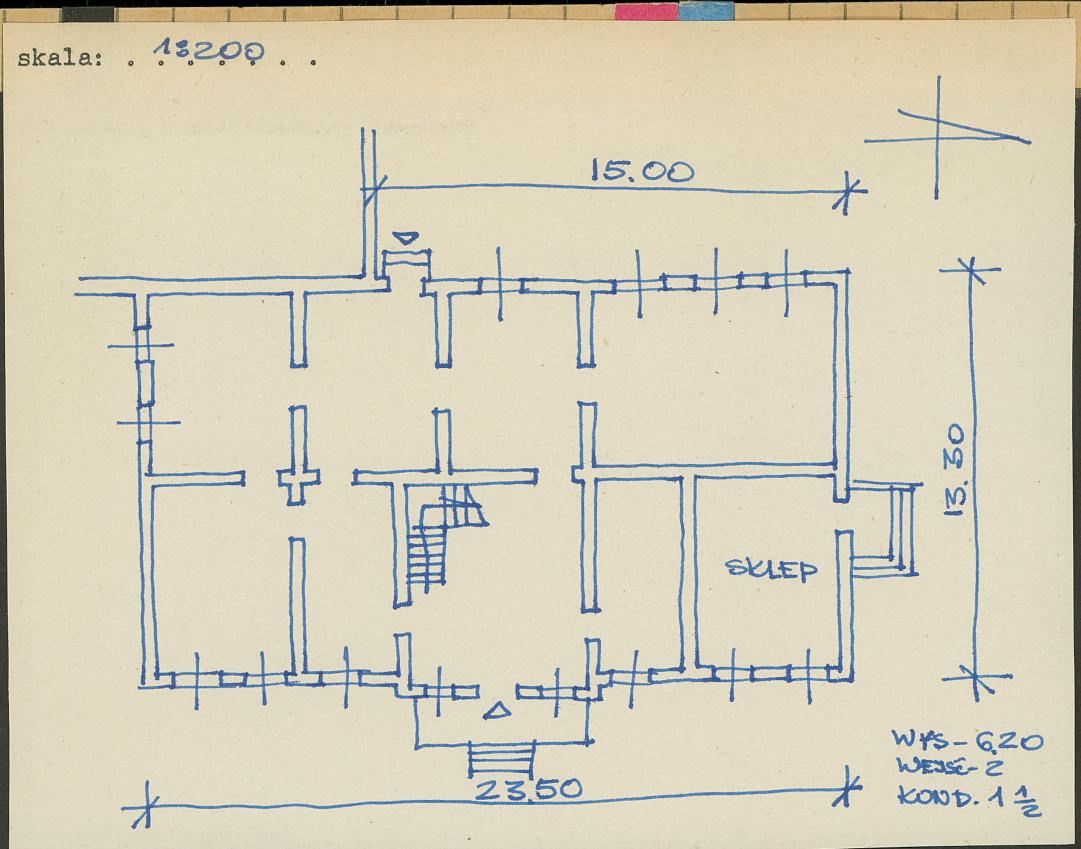 skala: . 1:200 . .
15.00
13.30
SKLEP
WYS - 6.20
WEJŚĆ - 2
KOND. 1 1/2
23.50